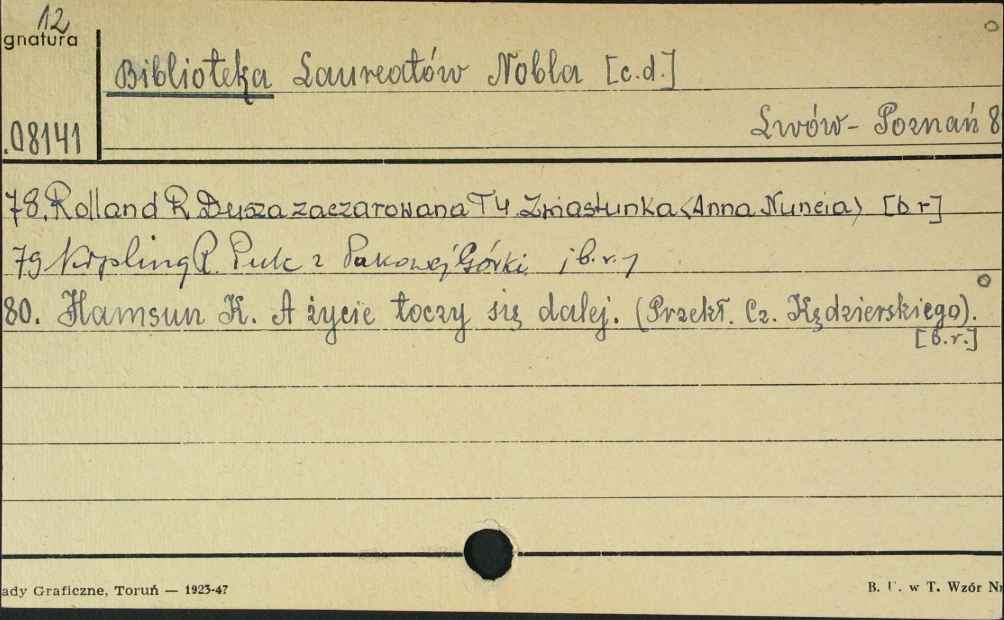 12
gnatura
Biblioteka Laureatów Nobla [c.d.]
.08141
Lwów - Poznań 8
78. Rolland R. Dusza zaczarowana T4 Zwiastunka (Anna Nuncia) [b r]
79 Kipling R. Puk z Pukowej Górki [b.r.]
80. Hamsun K. A życie toczy się dalej. (Przekł. Cz. Kędzierskiego).
[b.r.]
ady Graficzne, Toruń — 1923-47
B. U. w T. Wzór Nr